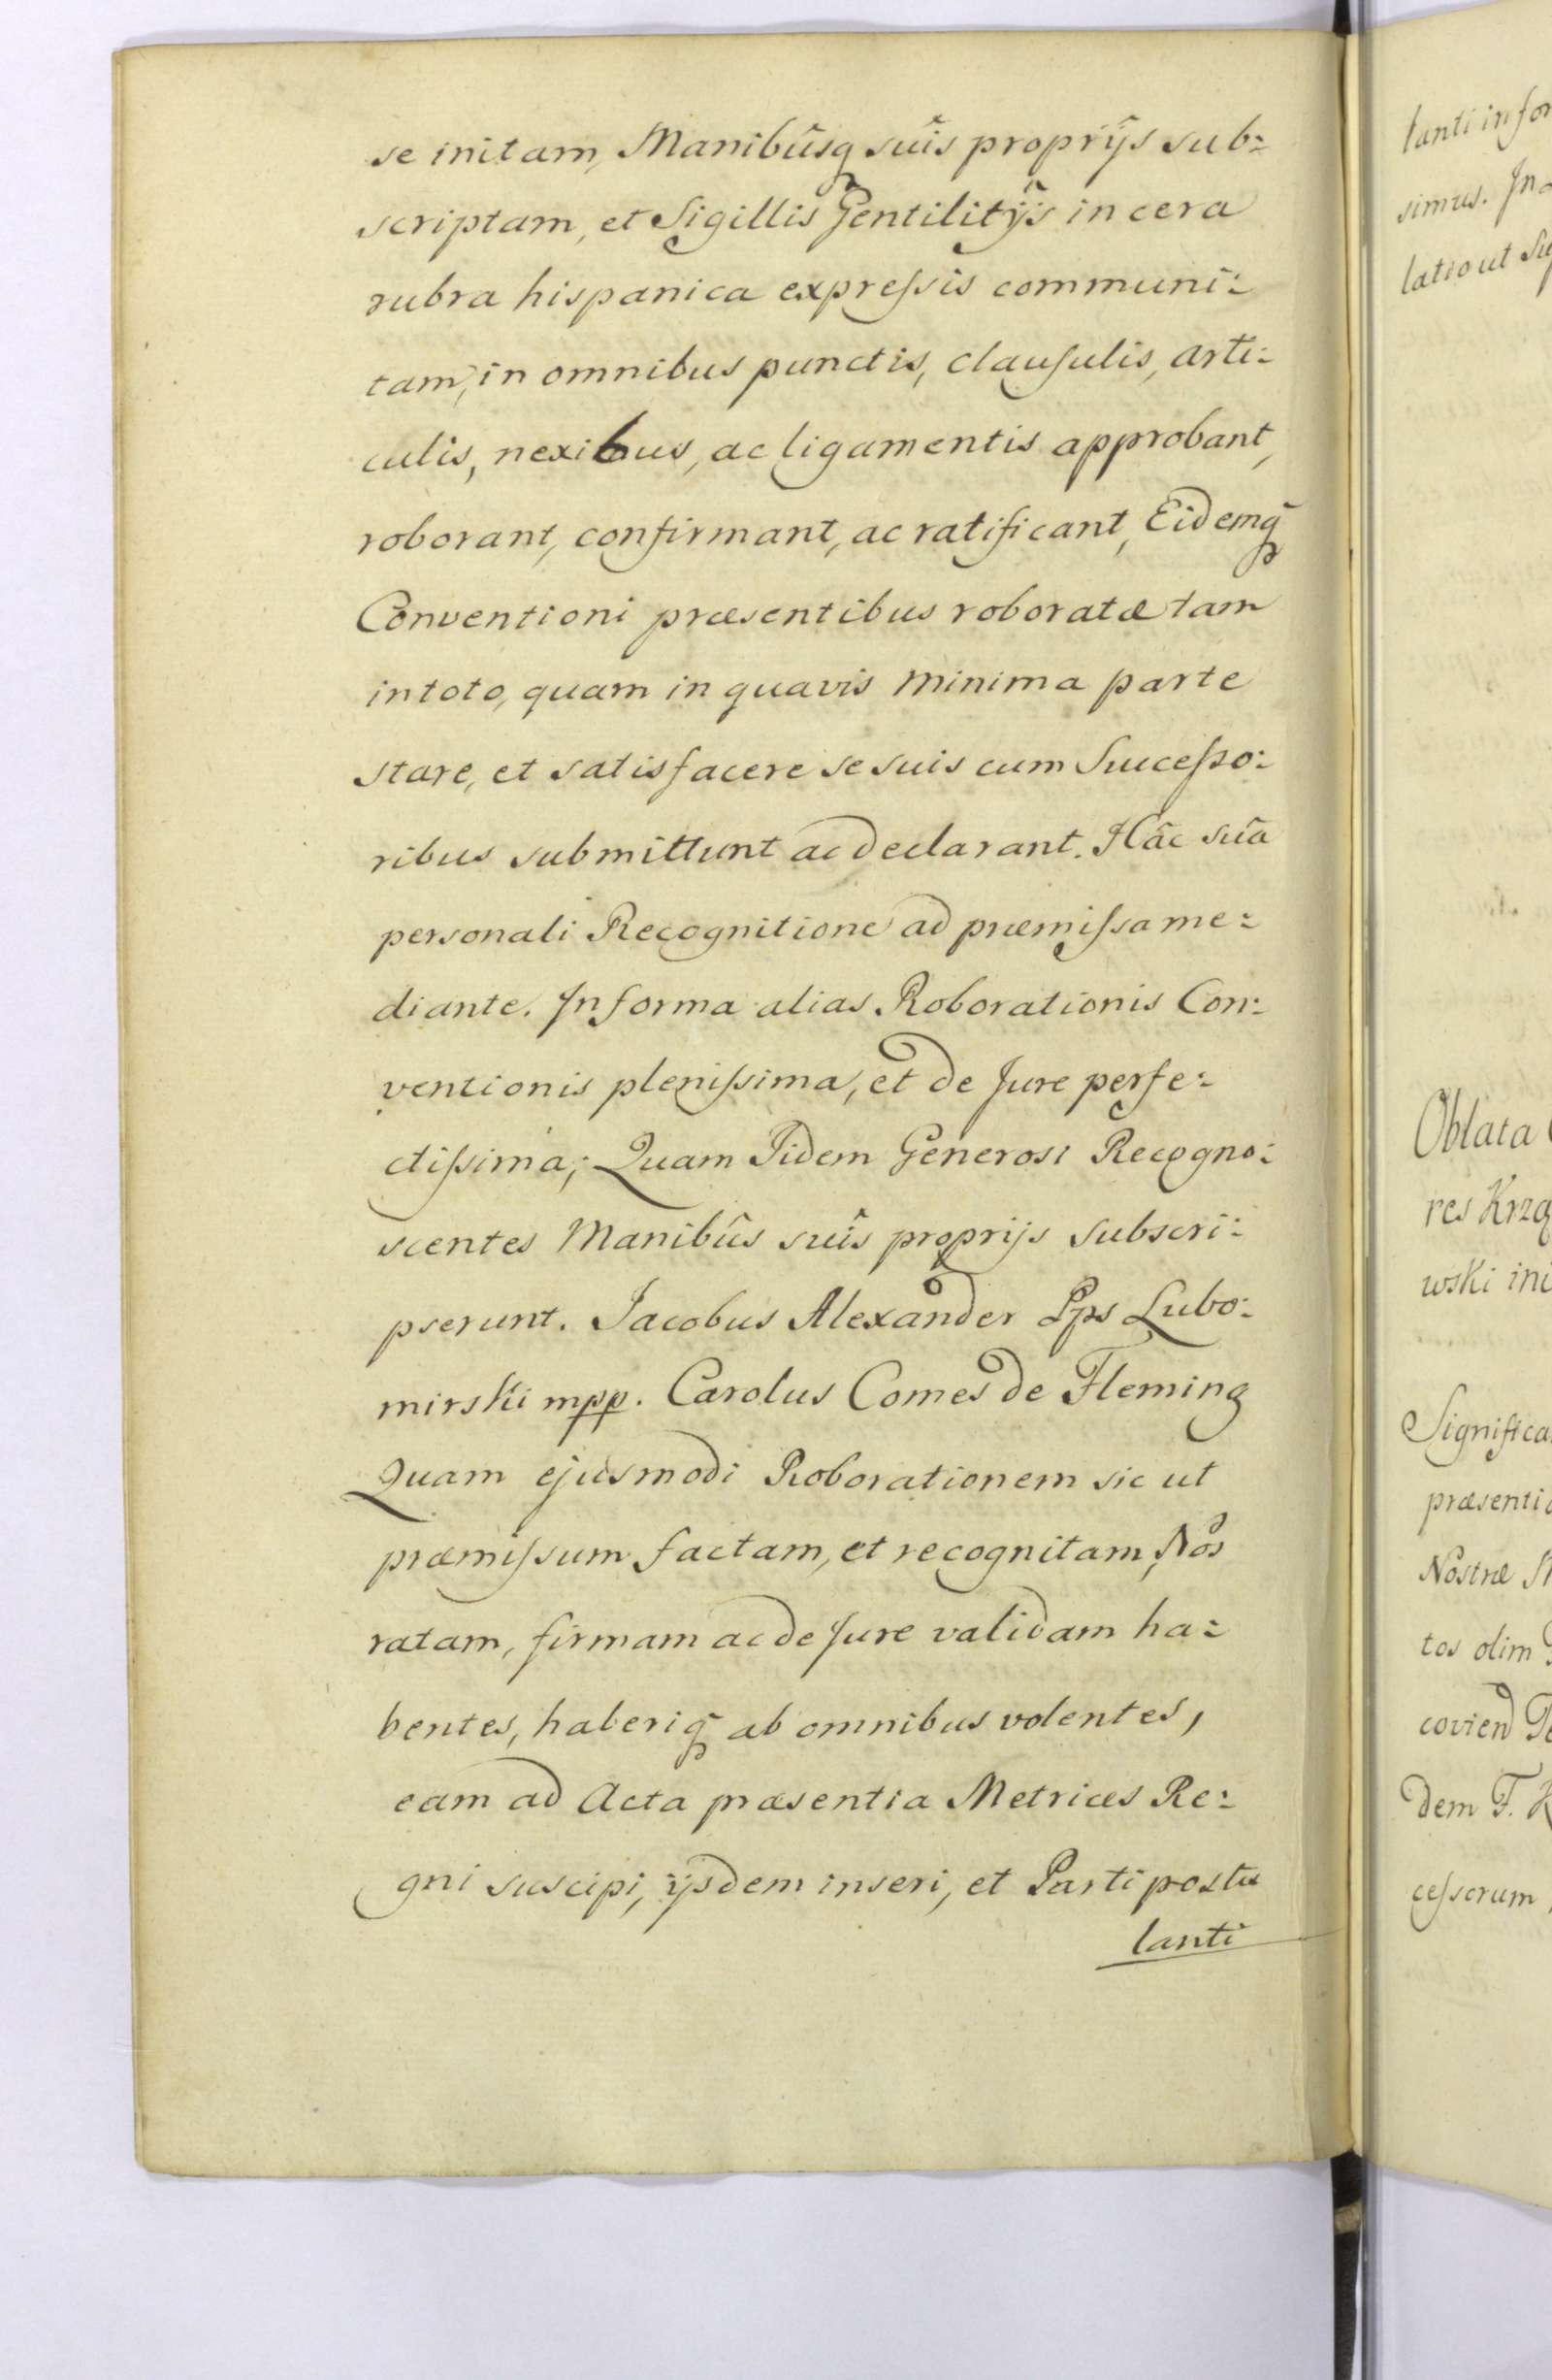 se initam, Manibûsq suîs proprijs sub:
scriptam, et Sigillis Gentilitijs in cera
rubra hispanica expreſsis communi:
tam, in omnibus punctis, clauſulis, arti:
culis, nexibus, ac ligamentis approbant,
roborant, confirmant, ac ratificant, Eidemq
Conventioni præsentibus roboratæ tam
in toto, quam in quavis minima parte
stare, et satisfacere se suis cum Succeſso:
ribus submittunt ac declarant. Hâc suâ
personali Recognitione ad præmiſsa me:
diante. In forma alias Roborationis Con:
ventionis pleniſsima, et de Jure perfe:
ctiſsima; Quam Iidem Generosi Recogno:
scentes Manibûs suîs proprijs subscri:
pserunt. Jacobus Alexander Pps Lubo:
mirski mpp. Carolus Comes de Fleming
Quam ejusmodi Roborationem sic ut
præmiſsum factam, et recognitam, Nos
ratam, firmam ac de Jure validam ha:
bentes, haberiq ab omnibus volentes,
eam ad Acta præsentia Metrices Re:
gni suscipi, ijsdem inseri, et Parti postu
lanti
lanti in for
simus. In
latio ut Su
Oblata
res Krzq
wski ini
Significa
præsenti
Nostræ
tos olim
covien
dem F. K
ceſsorum